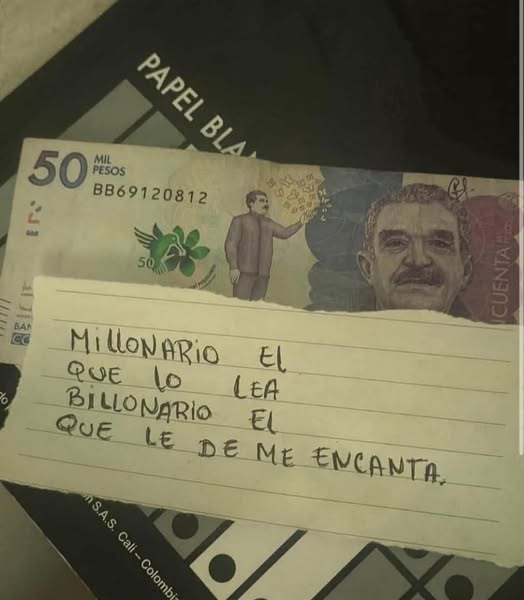 PAPEL BLA
50 MIL
PESOS
BB69120812
50
MILLONARIO EL
QUE LO LEA
BILLONARIO EL
QUE LE DE ME ENCANTA.
S.A.S. Cali – Colombia